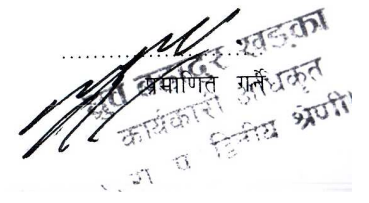 प्रमाणित गर्ने
बहादुर खड्का
कार्यकारी अधिकृत
द्वितीय श्रेणी